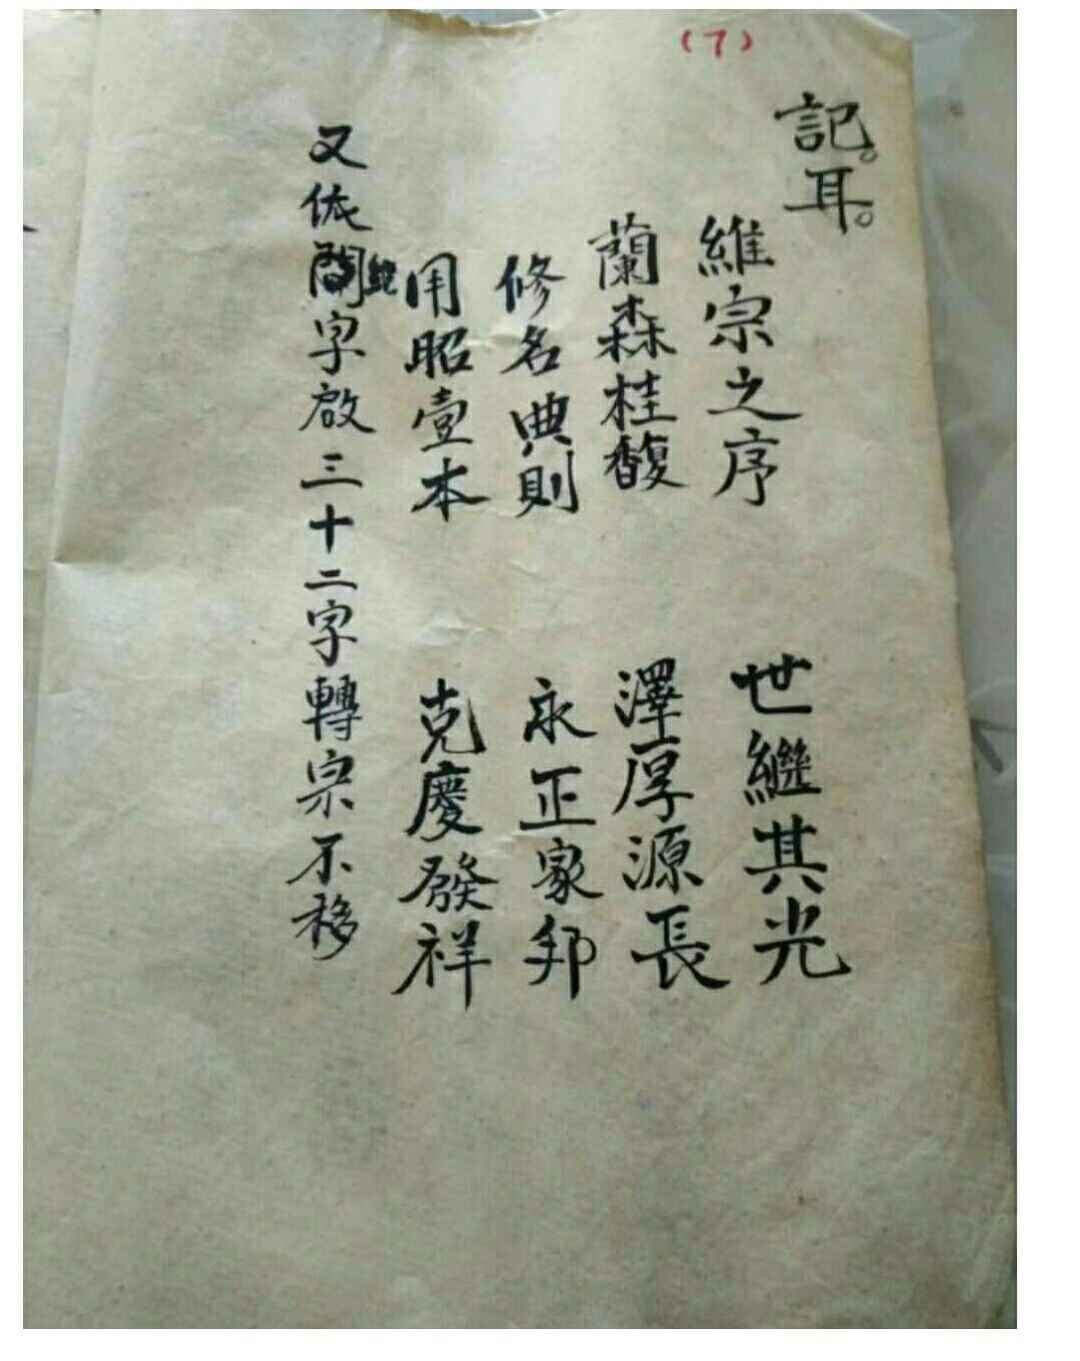 (7)
記。耳。
維宗之序 世繼其光
蘭森桂馥 澤厚源長
修名典則 永正家邦
用昭壹本 克慶發祥
又依字啟三十二字轉宗不移